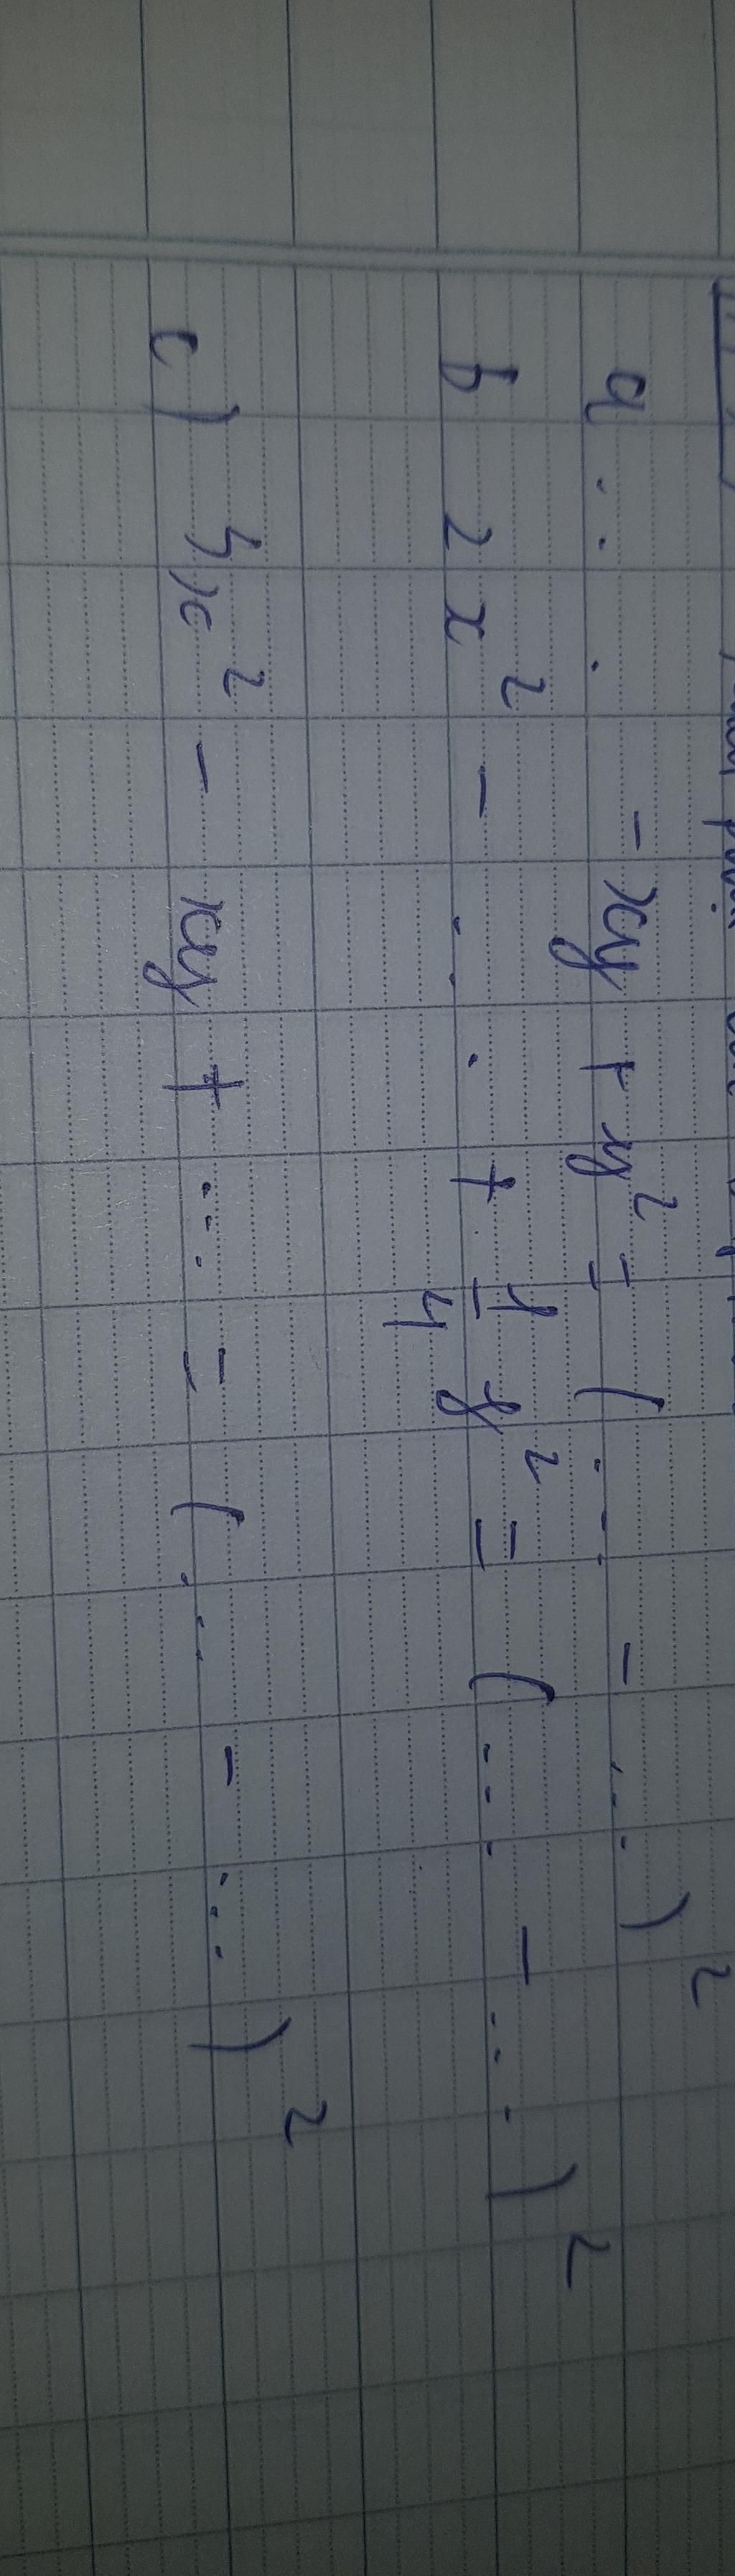 a ... - xy + y² = (... - ...)²
b 2x² - ... + 1/4 y² = (... - ...)²
c) 4x² - xy + ... = (... - ...)²